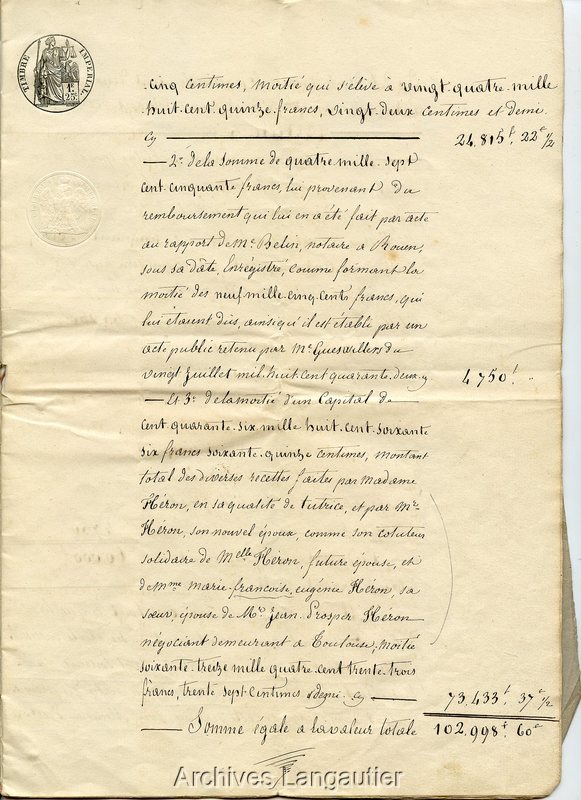 TIMBRE IMPÉRIAL
1F 25c
cinq centimes, moitié qui s'élève à vingt-quatre mille
huit-cent-quinze-francs, vingt-deux centimes et demi
Cy 24,815f 22c 1/2
— 2° de la somme de quatre mille-sept
cent-cinquante francs, lui provenant du
remboursement qui lui en a été fait par acte
au rapport de Me Belin, notaire a Rouen,
sous sa dâte, Enrégistré, comme formant la
moitié des neuf-mille-cinq-cents francs, qui
lui étaient dûs, ainsi qu'il est établi par un
acte public retenu par Me du
vingt Juillet mil-huit-cent quarante-deux, cy 4,750f "
— Et 3° de la moitié d'un Capital de
cent-quarante-six-mille huit-cent-soixante
six francs soixante-quinze centimes, montant
total des diverses recettes faites par Madame
Héron, en sa qualité de tutrice, et par Mr
Héron, son nouvel époux, comme son cotuteur
solidaire de Melle Héron, future épouse, et
de Mme marie-francoise, eugénie Héron, sa
sœur, épouse de Mr Jean-Prosper Héron
négociant demeurant a Toulouse, moitié
soixante-treize mille quatre-cent trente trois
francs, trente sept Centimes & demi. Cy — 73,433f 37c 1/2
— Somme égale a la valeur totale 102,998f 60c
Archives Langautier